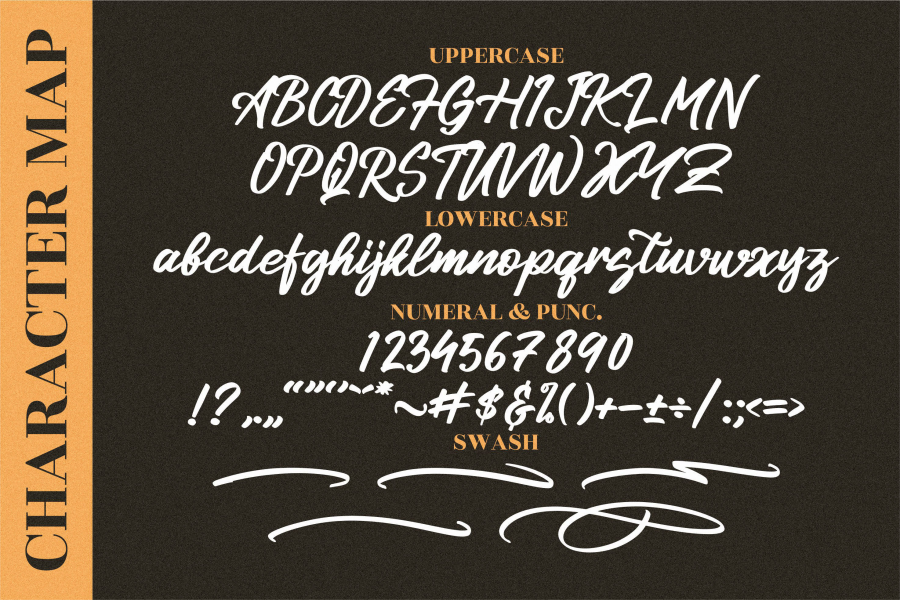 CHARACTER MAP
UPPERCASE
ABCDEFGHIJKLMN
OPQRSTUVWXYZ
LOWERCASE
abcdefghijklmnopqrstuvwxyz
NUMERAL & PUNC.
1234567890
!?,.„“”‘’~-*~#$&%()+−±÷/:;<=>
SWASH